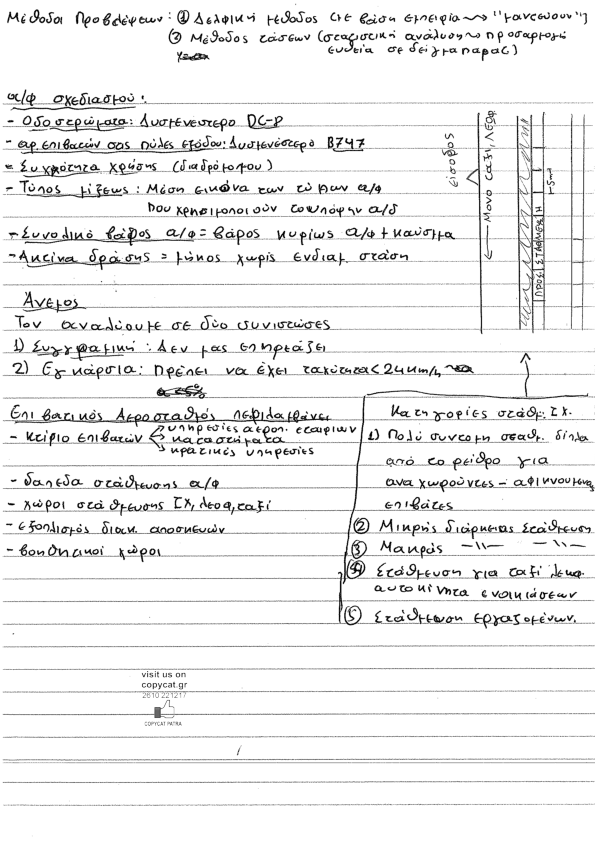 Μέθοδοι Προβλέψεων: ① Δελφική μέθοδος (με βάση εμπειρία ~> "μαντεύουν")
② Μέθοδος τάσεων (στατιστική ανάλυση ~> προσαρμογή
ευθεία σε δείγμα παρας)
α/φ σχεδιασμού:
- Οδοστρώματα: Δυσμενέστερο DC-8
- αρ. επιβατών στις πύλες εξόδου: Δυσμενέστερο B747
- Συχνότητα χρήσης (διαδρόμου)
- Τύπος μίξεως: Μέση εικόνα των τύπων α/φ
που χρησιμοποιούν το υπόψην α/δ
- Συνολικό βάρος α/φ = βάρος κυρίως α/φ + καύσιμα
- Ακτίνα δράσης = μήκος χωρίς ενδιαμ. στάση
είσοδος
Μόνο ταξί, λεωφ
ΠΡΟΣ. ΣΤΑΘΜΕΥΣΗ
Άνεμος
Τον αναλύουμε σε δύο συνιστώσες
1) Συγγραμική: Δεν μας επηρεάζει
2) Εγκάρσια: Πρέπει να έχει ταχύτητα < 24 km/h
Επιβατικός Αεροσταθμός περιλαμβάνει
- κτίριο επιβατών
υπηρεσίες αεροπ. εταιριών
καταστήματα
κρατικές υπηρεσίες
- δάπεδα στάθμευσης α/φ
- χώροι στάθμευσης ΙΧ, λεωφ, ταξί
- εξοπλισμός διακ. αποσκευών
- βοηθητικοί χώροι
Κατηγορίες στάθμ. ΙΧ.
1) Πολύ σύντομη σταθμ. δίπλα
από το ρείθρο για
αναχωρούντες - αφικνουμένους
επιβάτες
② Μικρής διάρκειας Στάθμευση
③ Μακράς -//- -//-
④ Στάθμευση για ταξί λεωφ.
αυτοκίνητα ενοικιάσεων
⑤ Στάθμευση εργαζομένων.
visit us on
copycat.gr
2610 221217
COPYCAT PATRA